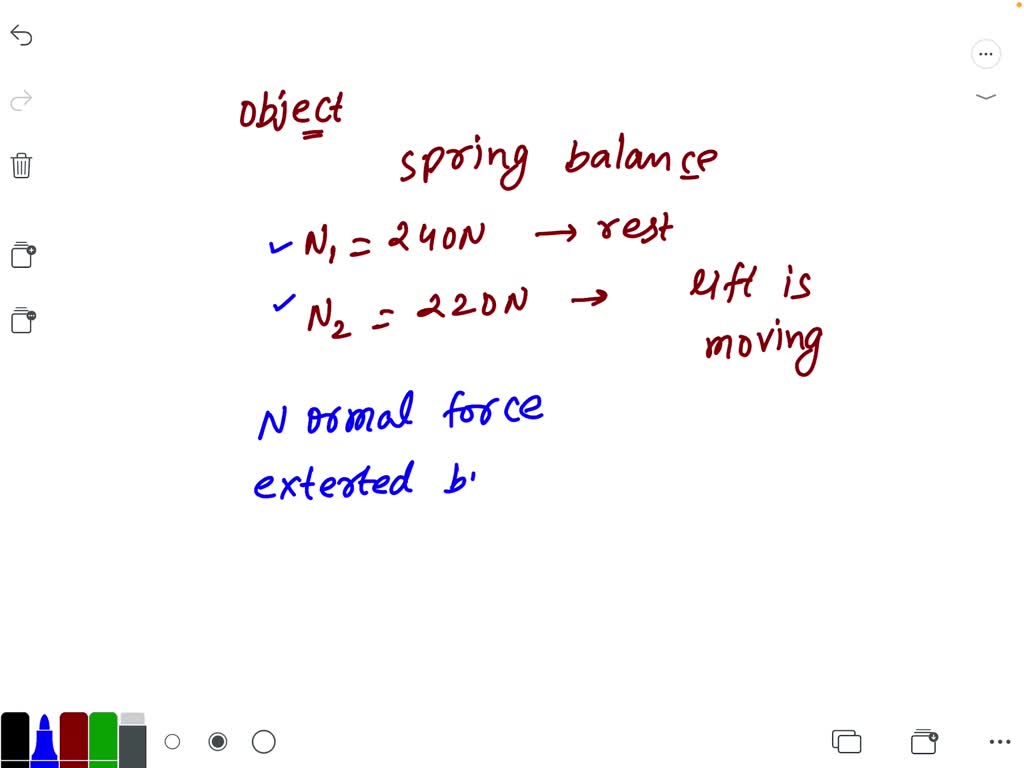 object
spring balance
N₁ = 240N → rest
N₂ = 220N → lift is
moving
Normal force
exterted b